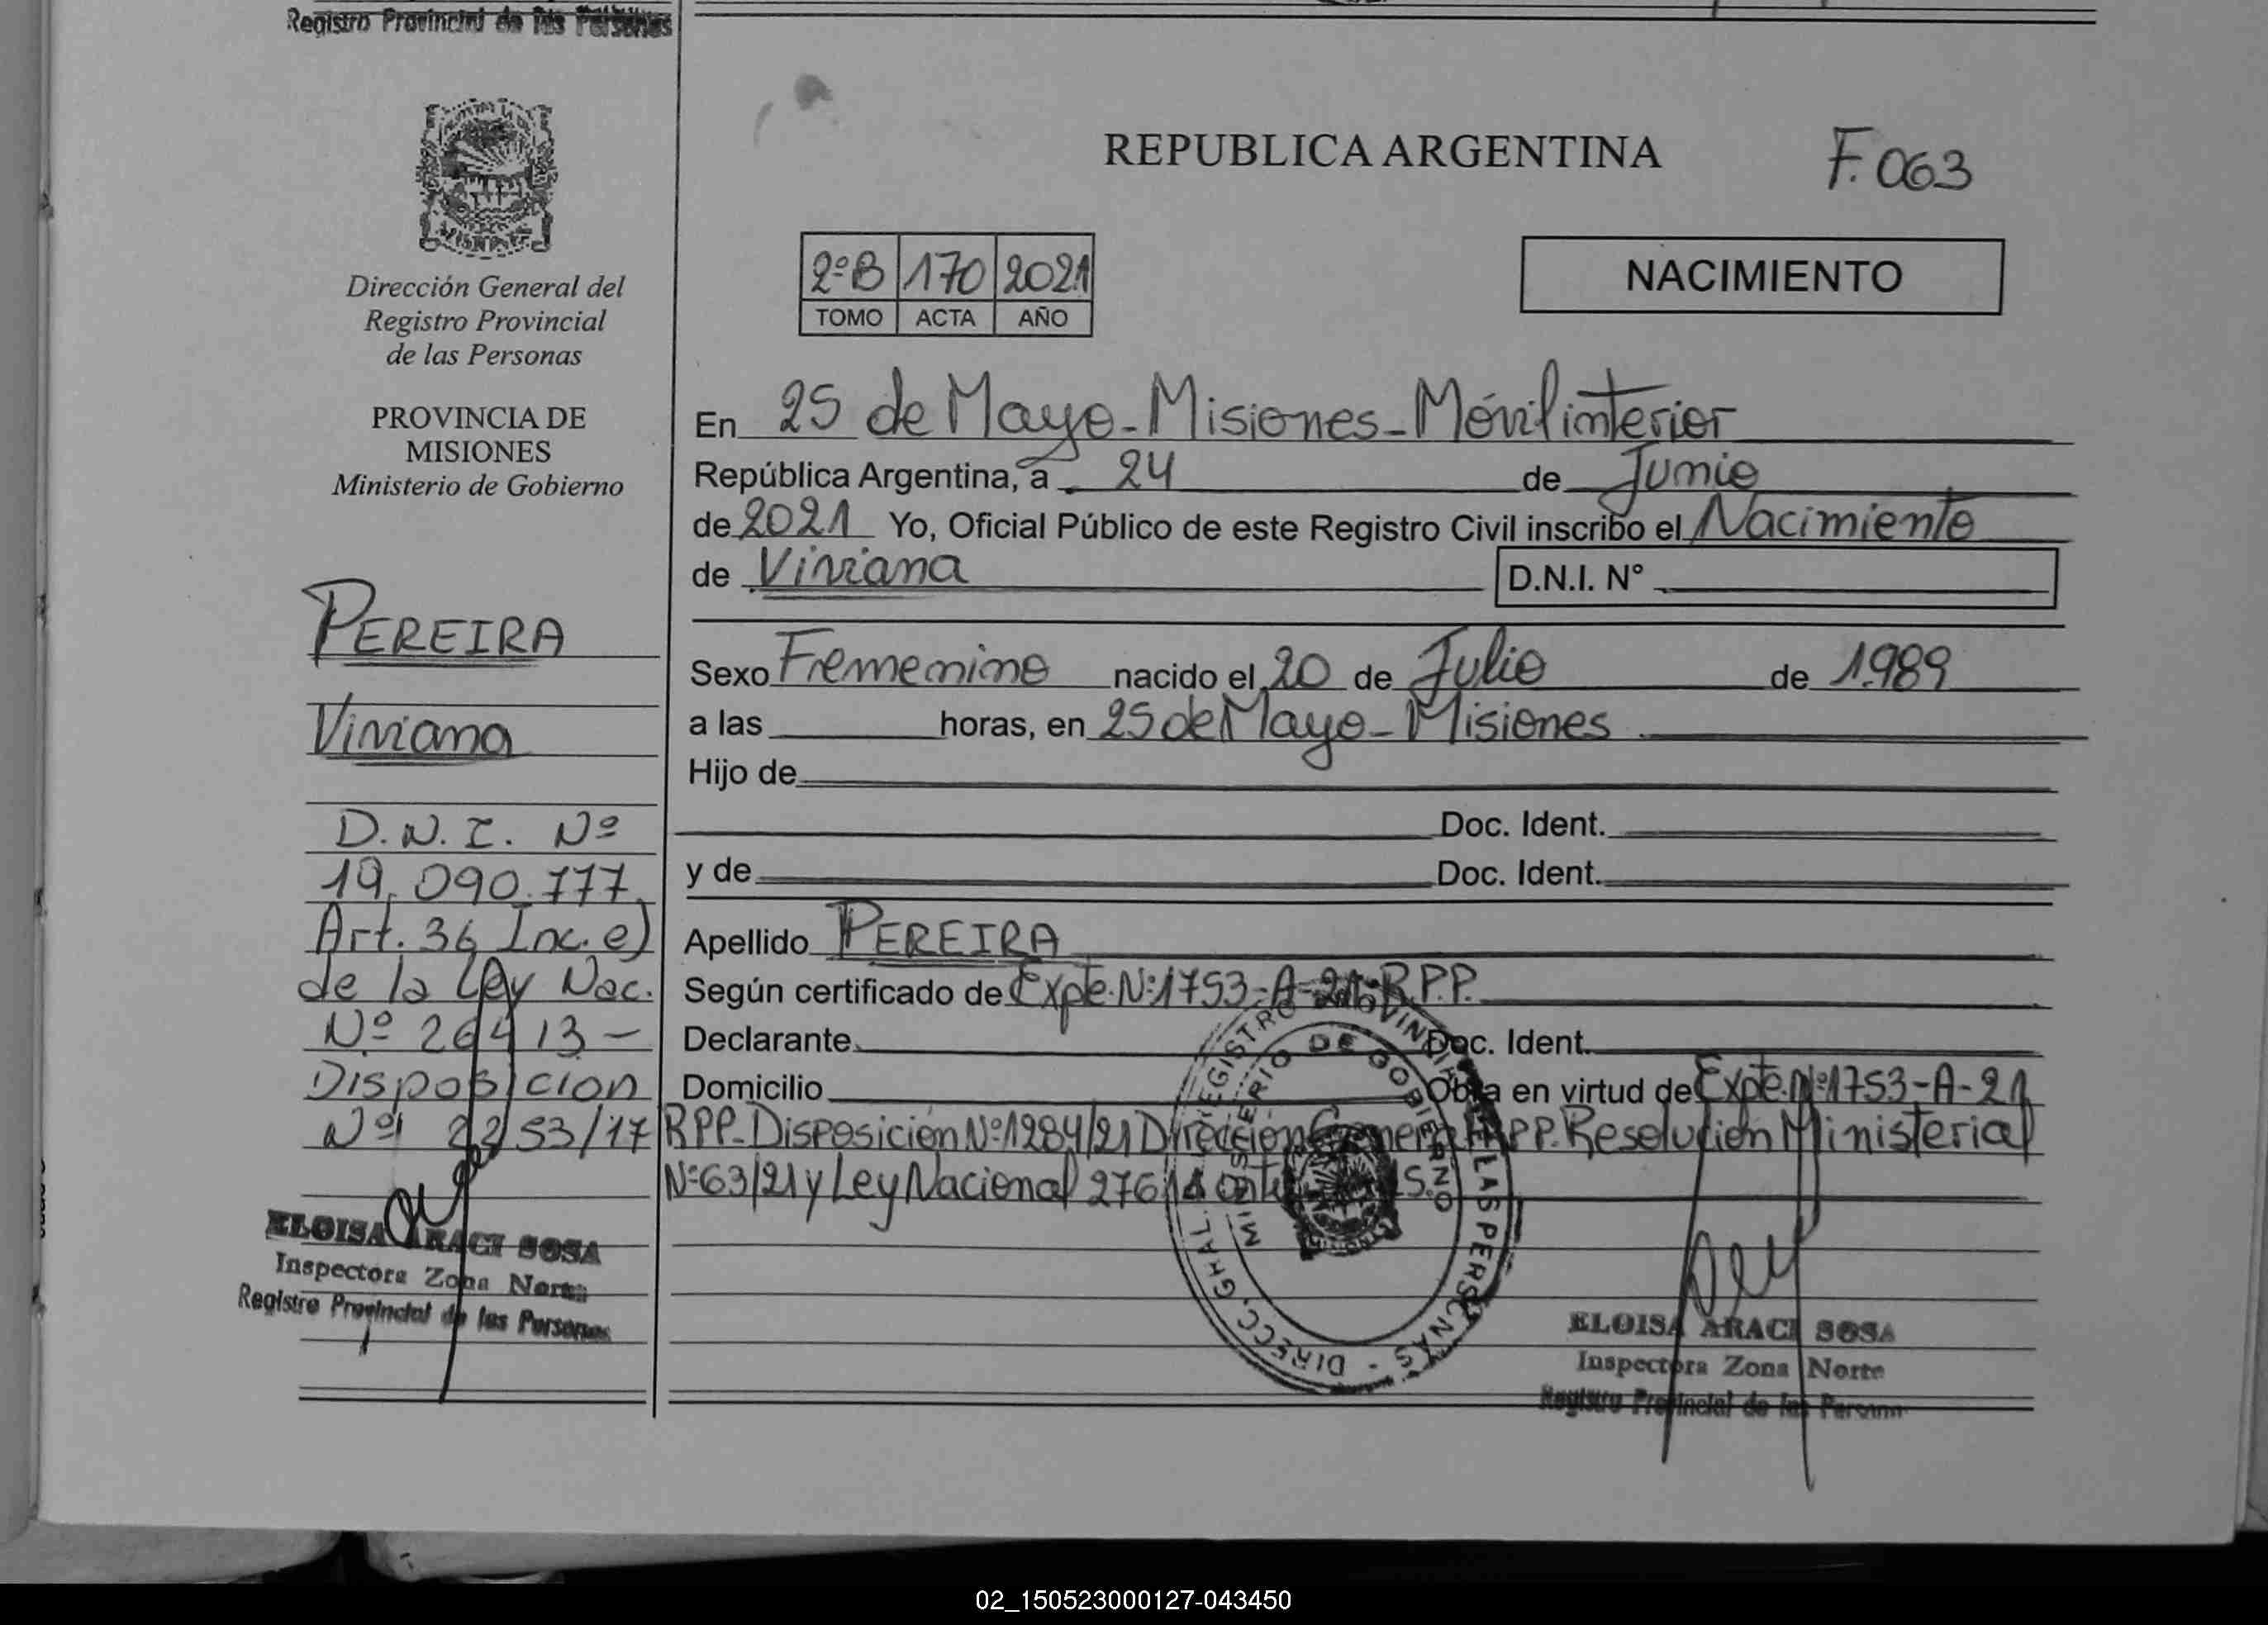 Registro Provincial de las Personas
Dirección General del
Registro Provincial
de las Personas
PROVINCIA DE
MISIONES
Ministerio de Gobierno
PEREIRA
Viviana
D.N.I. Nº
19.090.777
Art. 36 Inc. e)
de la Ley Nac.
Nº 26413-
Disposicion
Nº 2253/17
ELOISA ARACI SOSA
Inspectora Zona Norte
Registro Provincial de las Personas
REPUBLICA ARGENTINA
F. 063
2ºB 170 2021
TOMO ACTA AÑO
NACIMIENTO
En 25 de Mayo-Misiones-Móvil interior
República Argentina, a 24 de Junio
de 2021 Yo, Oficial Público de este Registro Civil inscribo el Nacimiento
de Viviana D.N.I. N°
Sexo Femenino nacido el 20 de Julio de 1989
a las horas, en 25 de Mayo-Misiones
Hijo de
Doc. Ident.
y de Doc. Ident.
Apellido PEREIRA
Según certificado de Expte. Nº1753-A-21-R.P.P.
Declarante Doc. Ident.
Domicilio Obra en virtud de Expte. Nº1753-A-21
RPP-Disposición Nº1284/21 Dirección General RPP. Resolución Ministerial
Nº63/21 y Ley Nacional 27611
DIRECC. GRAL. REGISTRO PROVINCIAL DE LAS PERSONAS
MINISTERIO DE GOBIERNO
ELOISA ARACI SOSA
Inspectora Zona Norte
Registro Provincial de las Personas
02_150523000127-043450